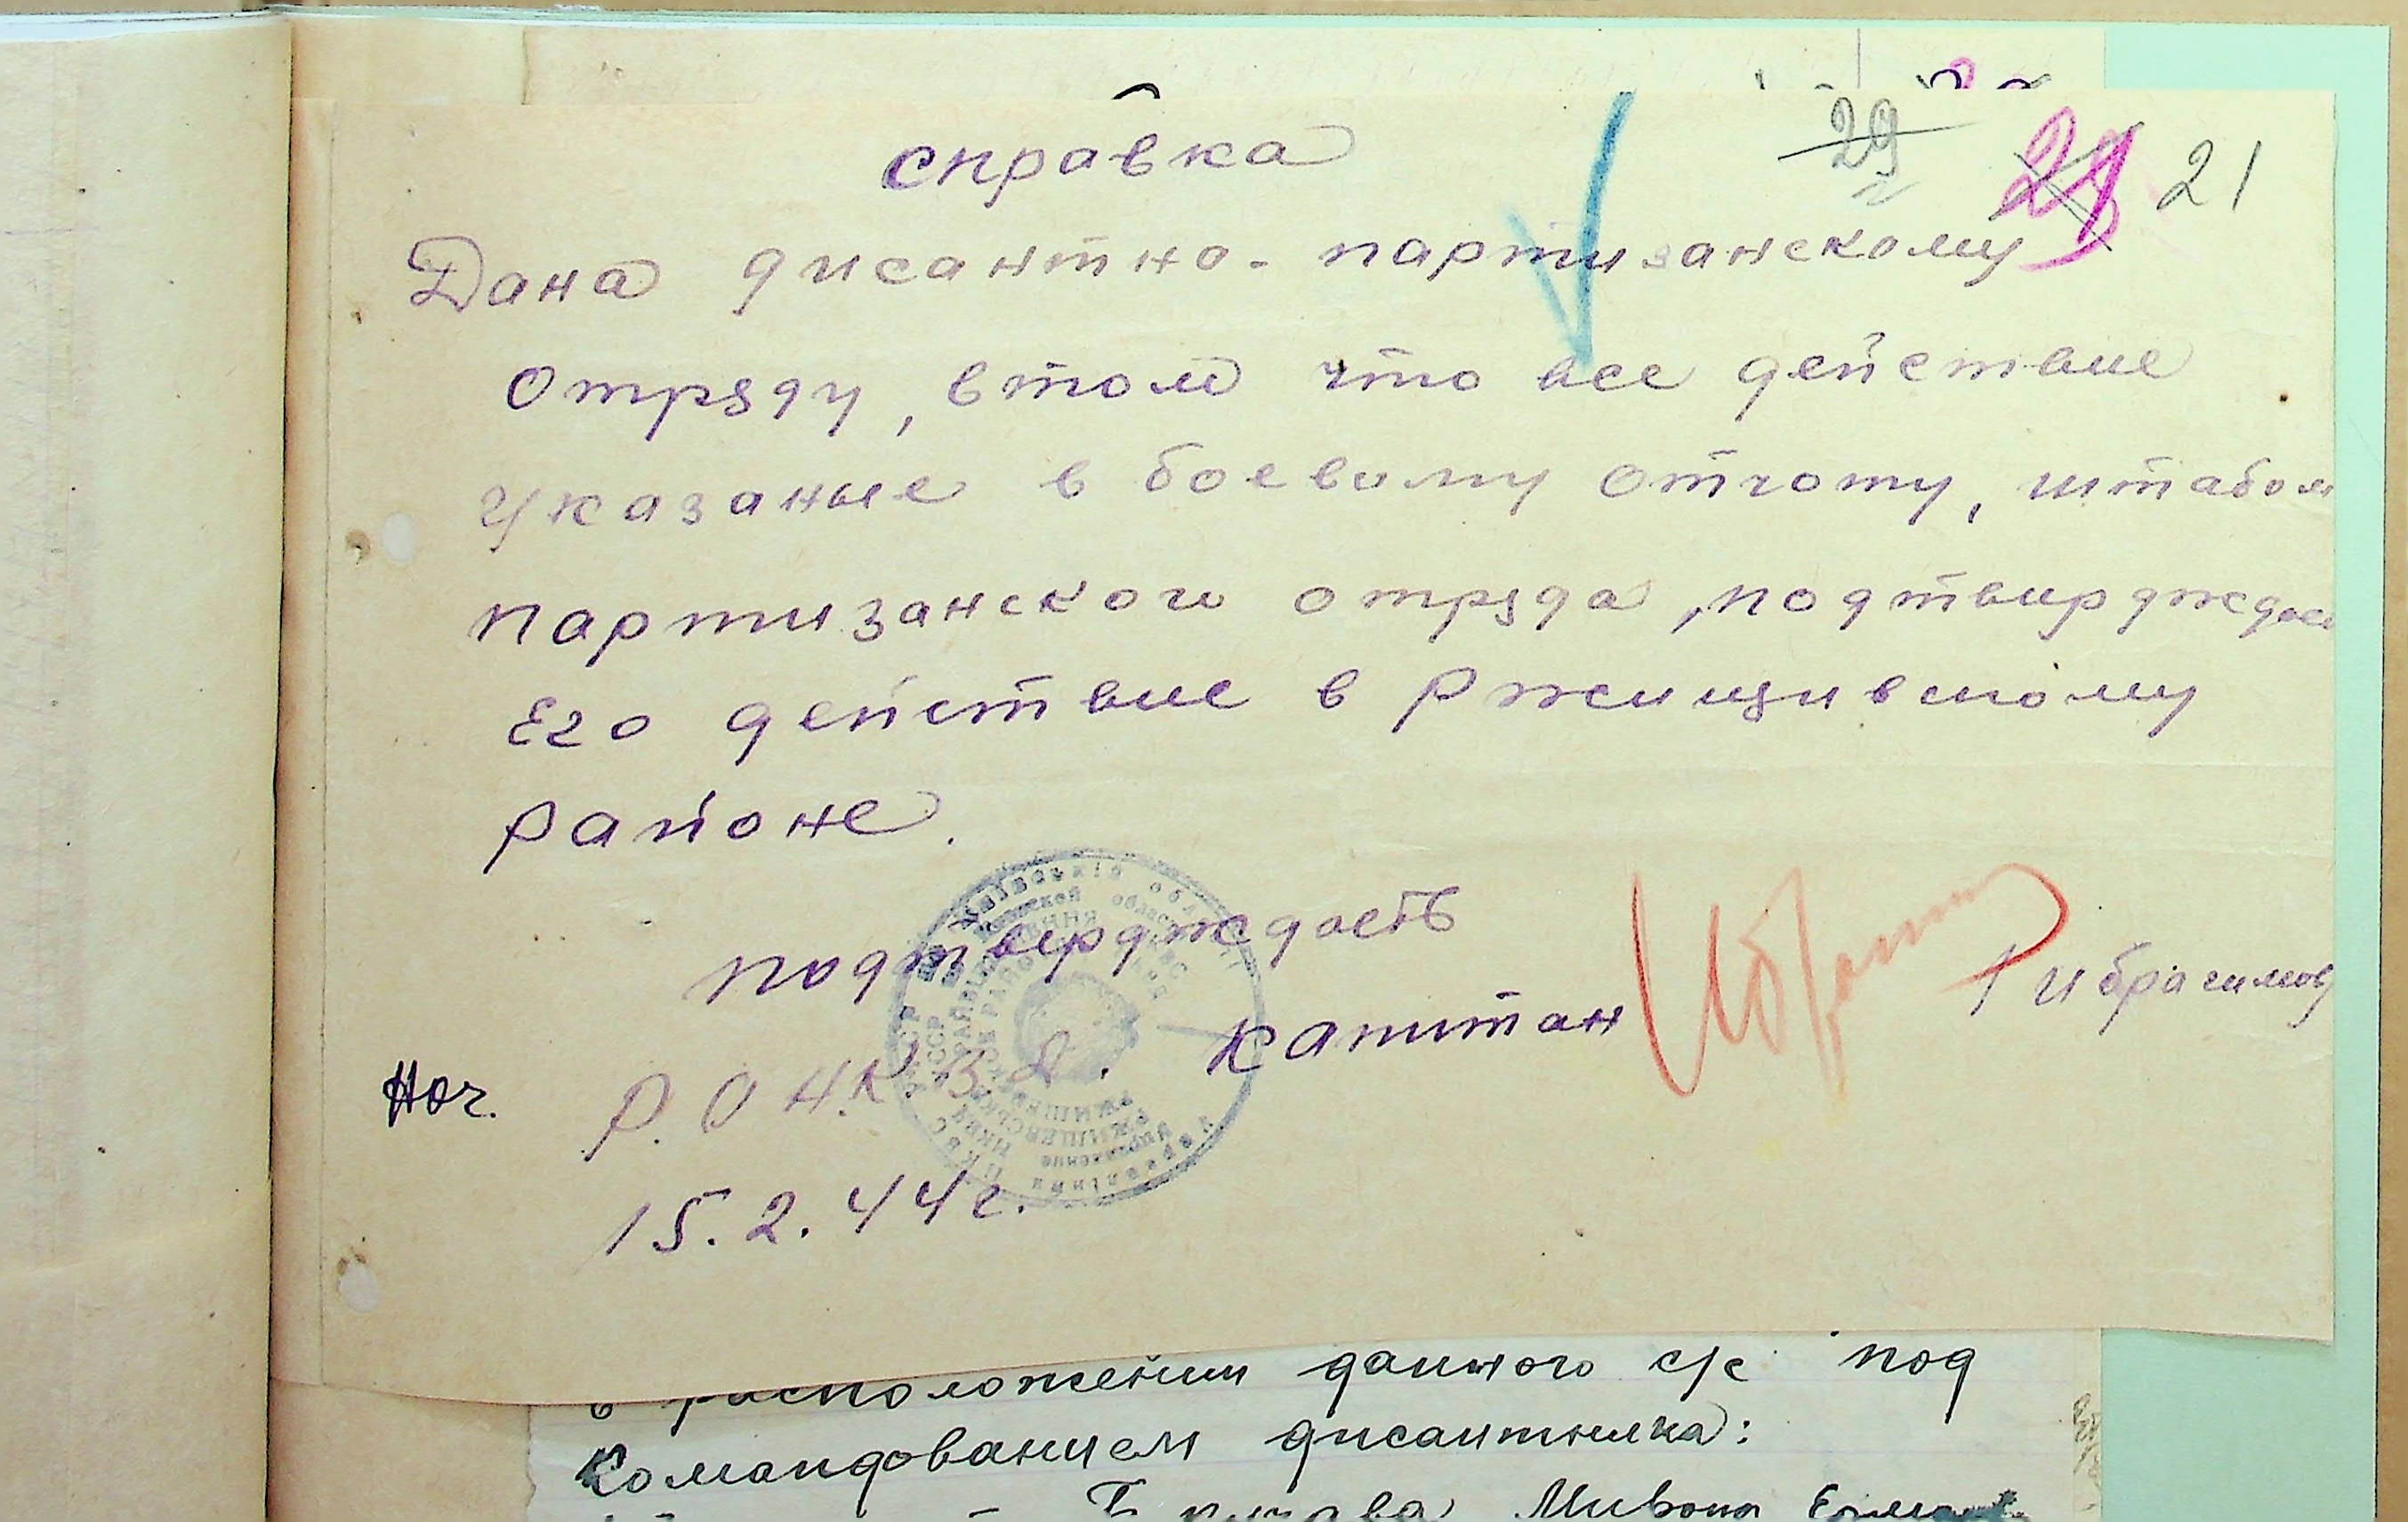 29 29 21
справка
Дана дисантно-партизанскому
отряду, в том что все действие
указаные в боевому отчоту, штабом
партизанского отряда, подтвирдждаей
Его действие в Ржищивскому
районе.
подтвирдждаеть
Нач. Р.О Н.К.В.Д. капитан /Ибрагимов/
15.2.44г.
в расположении данного с/с под
командованием дисантника: